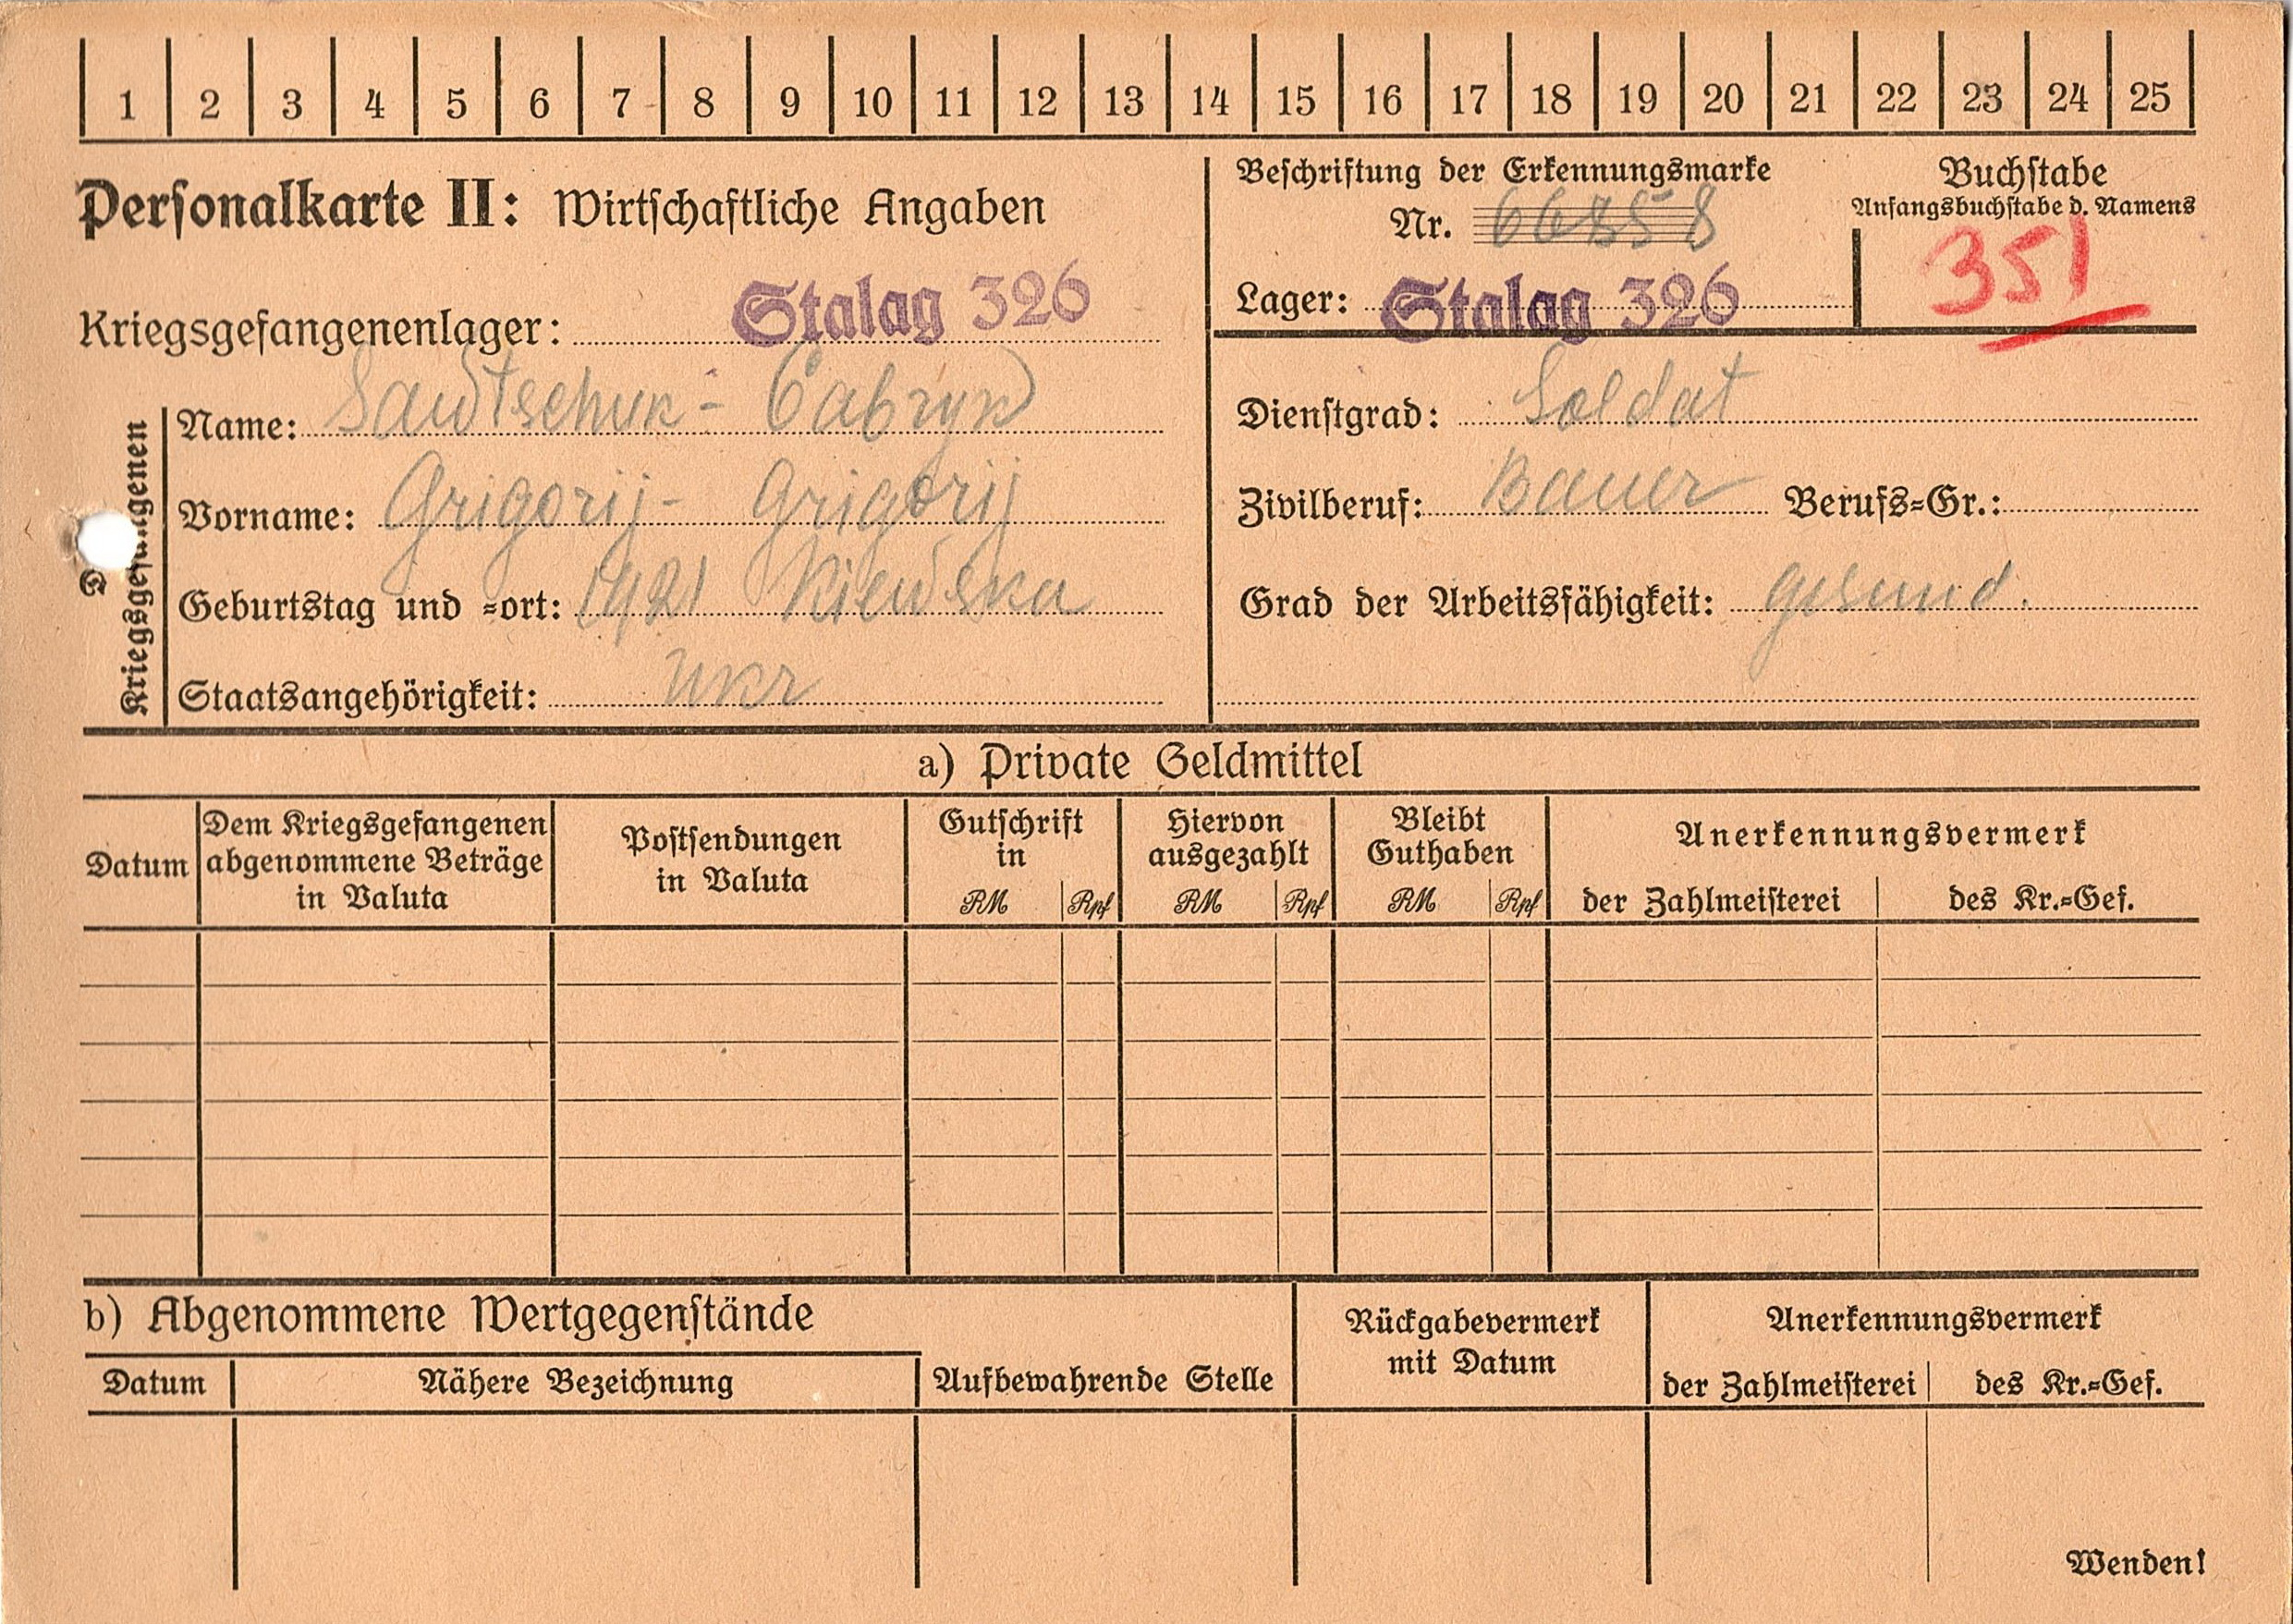 1 2 3 4 5 6 7 8 9 10 11 12 13 14 15 16 17 18 19 20 21 22 23 24 25
Personalkarte II: Wirtschaftliche Angaben
Beschriftung der Erkennungsmarke
Nr. 66858
Lager: Stalag 326
Buchstabe
Anfangsbuchstabe d. Namens
351
Kriegsgefangenenlager: Stalag 326
Kriegsgefangenen
Name: Sawtschuk -
Vorname: Grigorij - Grigorij
Geburtstag und =ort: 1921 Kiewska
Staatsangehörigkeit: Ukr
Dienstgrad: Soldat
Zivilberuf: Bauer Berufs=Gr.:
Grad der Arbeitsfähigkeit: gesund.
a) Private Geldmittel
Datum
Dem Kriegsgefangenen
abgenommene Beträge
in Valuta
Postsendungen
in Valuta
Gutschrift
in
RM Rpf
Hiervon
ausgezahlt
RM Rpf
Bleibt
Guthaben
RM Rpf
Anerkennungsvermerk
der Zahlmeisterei des Kr.=Gef.
b) Abgenommene Wertgegenstände
Datum Nähere Bezeichnung Aufbewahrende Stelle
Rückgabevermerk
mit Datum
Anerkennungsvermerk
der Zahlmeisterei des Kr.=Gef.
Wenden!